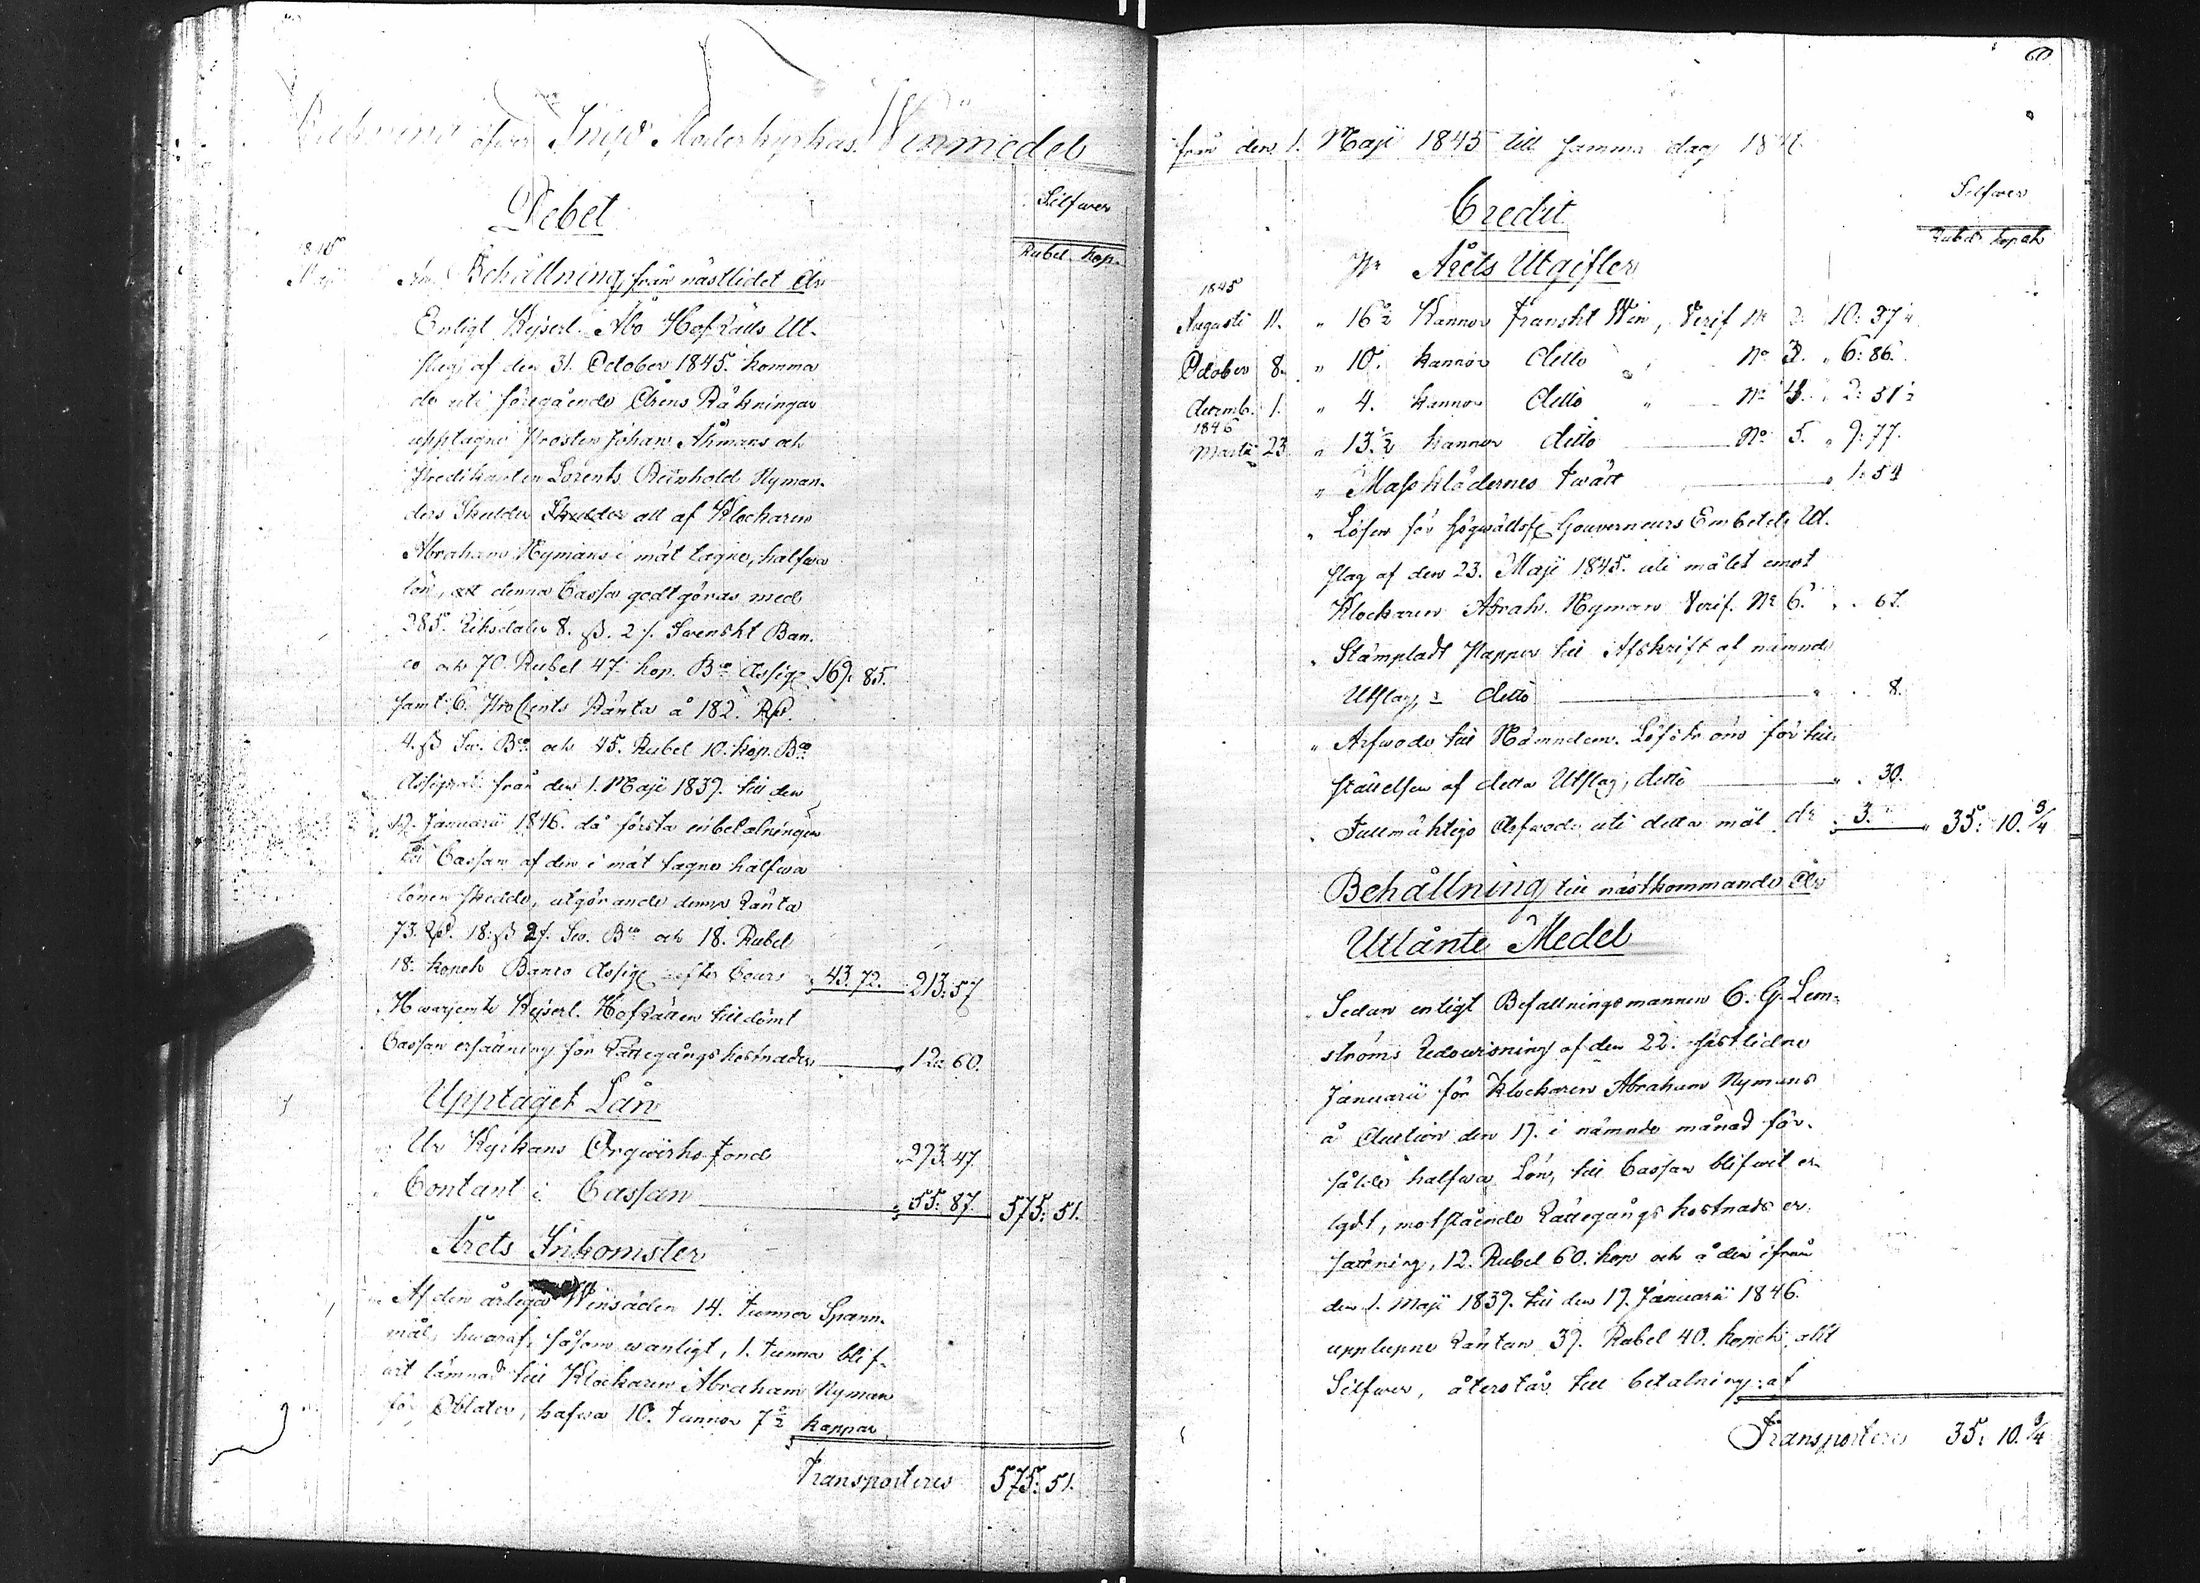 Räkning öfver Ingo Moderkyrkas Winmedel
Debet
Silfwer
Rubel kop.
1845
Maji
An Behållning från nästlidet År
Enligt Kejserl. Åbo HofRätts Ut-
slag af den 31. October 1845. komma
de uti föregående Årens Räkningar
upptagne Prosten Johan Åhmans och
Predikanten Lorents Reinhold Nyman-
ders Skulder Skulder att af Klockaren
Abraham Nymans i mät tagne, halfwa
lön, att denna Cassa godtgöras med
285. Riksdaler 8. ß. 2 f. Swenskt Ban-
co och 70. Rubel 47. kop. Bco Assign 169. 85.
samt 6. ProCents Ränta å 182. Rd.
4. ß Sw. Bco och 45. Rubel 10. kop. Bco
Assignat. från den 1. Maji 1839. till den
19. Januarii 1846. då första inbetalningen
till Cassan af den i mät tagne halfwa
lönen skedde, utgörande denna Ränta
73. Rd. 18. ß 2 f. Sw. Bco och 18. Rubel
18. kopek Banco Assign efter Cours 43. 72. 213: 57
Hwarjemte Kejserl. HofRätten tilldömt
Cassan ersättning för Rättegångskostnader 12: 60.
Upptaget Lån
Ur Kyrkans Orgwerksfond 293. 47.
Contant i Cassan 55: 87. 575: 51.
Årets Inkomster
Af den årliga Winsäden 14. tunnor Spann-
mål, hwaraf, såsom wanligt, 1. tunna blif-
wit lämnad till Klockaren Abraham Nyman
för Oblater, hafwa 10. tunnor 7 1/2 kappar
Transporteres 575: 51.
60
från den 1. Maji 1845 till samma dag 1846.
Credit
Silfwer
Rubel kopek
Pr Årets Utgifter
1845
Augusti 11. " 16 1/2 Kannor Franskt Win, Verif No 2. 10: 37
October 8. " 10. kannor ditto " No 3. " 6: 86.
Decemb. 1. " 4. kannor ditto " No 4. " 2: 51
1846
Martii 23. " 13 1/2 kannor ditto No 5. " 9: 77.
" Mässklädernes twätt " 1: 54
" Lösen för Högwällofl Gouverneurs Embetets Ut-
slag af den 23. Maji 1845. uti målet emot
Klockaren Abrah. Nyman Verif. No 6. " . 67.
" Stämpladt Papper till Afskrift af nämnde
Utslag, = ditto " . 8.
" Arfwode till Nämndem. Löfström för till-
ställelsen af detta Utslag, ditto " . 30.
" Fullmäktigs Arfwode uti detta mål do " 3. " " 35: 10. 3/4
Behållning till nästkommande År
Utlånte Medel
" Sedan enligt Befallningsmannen C. G. Lem-
ströms Redowisning af den 22. sistlidne
Januarii för Klockaren Abraham Nymans
å Auction den 19. i nämnde månad för-
sålde halfwa Lön, till Cassan blifwit er-
lagdt, motstående Rättegångskostnads er-
sättning, 12. Rubel 60. kop och å den ifrån
den 1. Maji 1839. till den 19. Januarii 1846.
upplupne Räntan 39. Rubel 40. kopek, allt
Silfwer, återstår till betalning: af
Transporteres 35: 10. 3/4